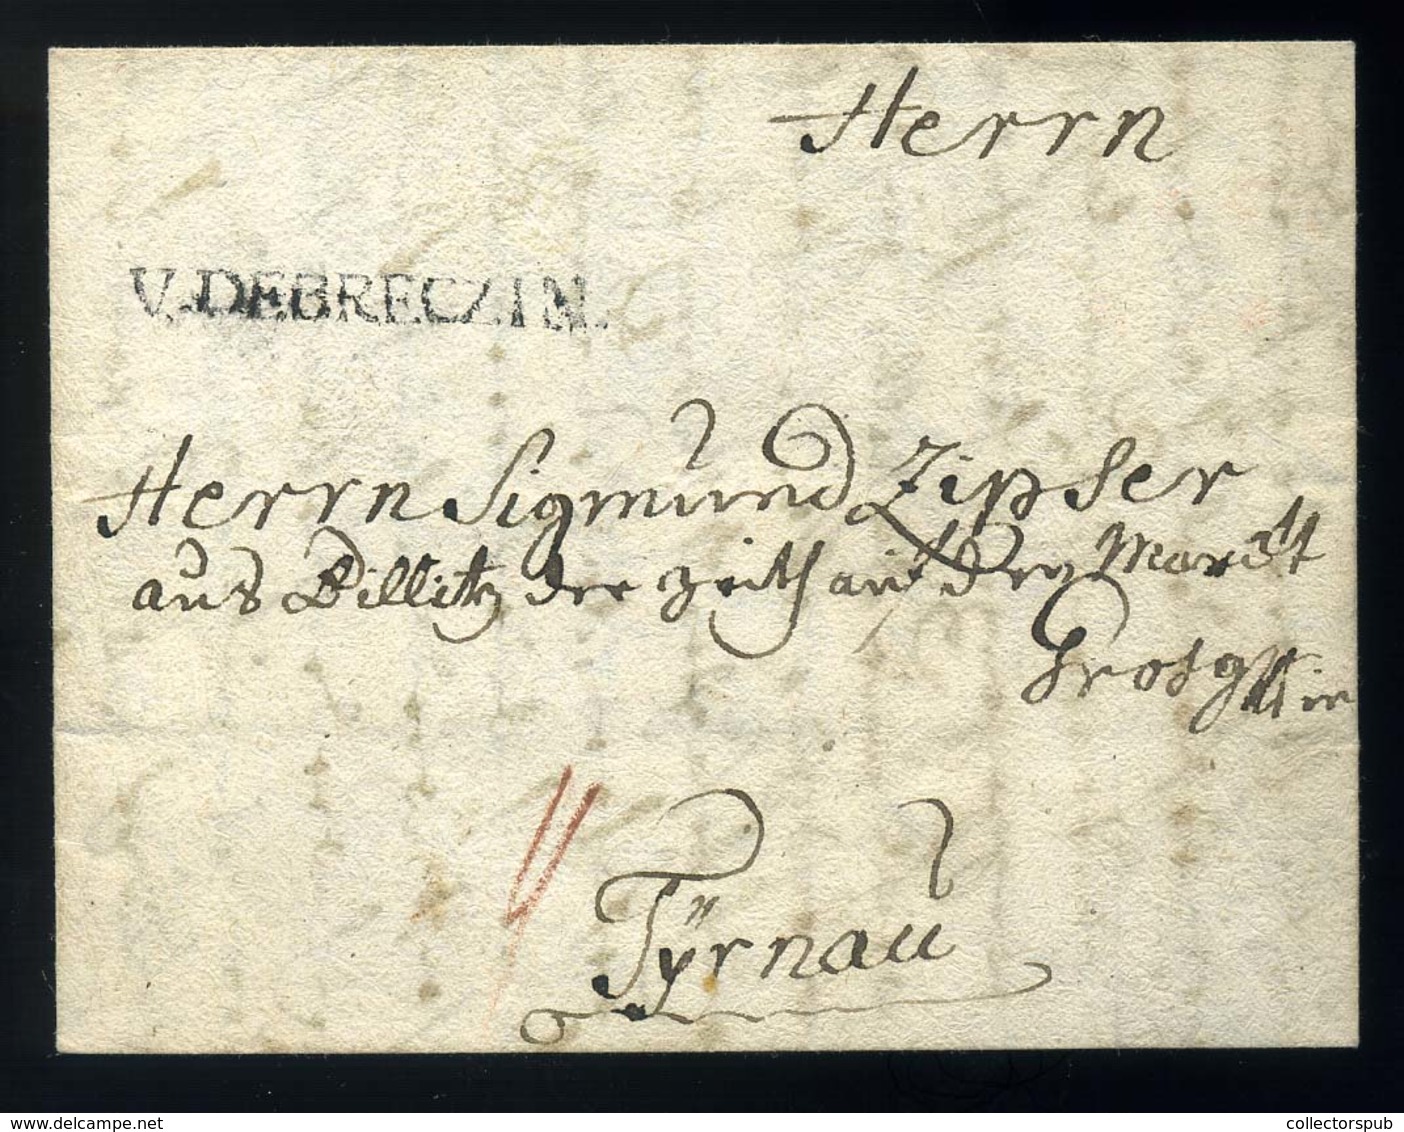 Herrn
V. DEBRECZIN.
Herrn Sigmund Zipser
aus Billitz der zeith auf den Marckt
Tÿrnau
www.delcampe.net
collectorspub